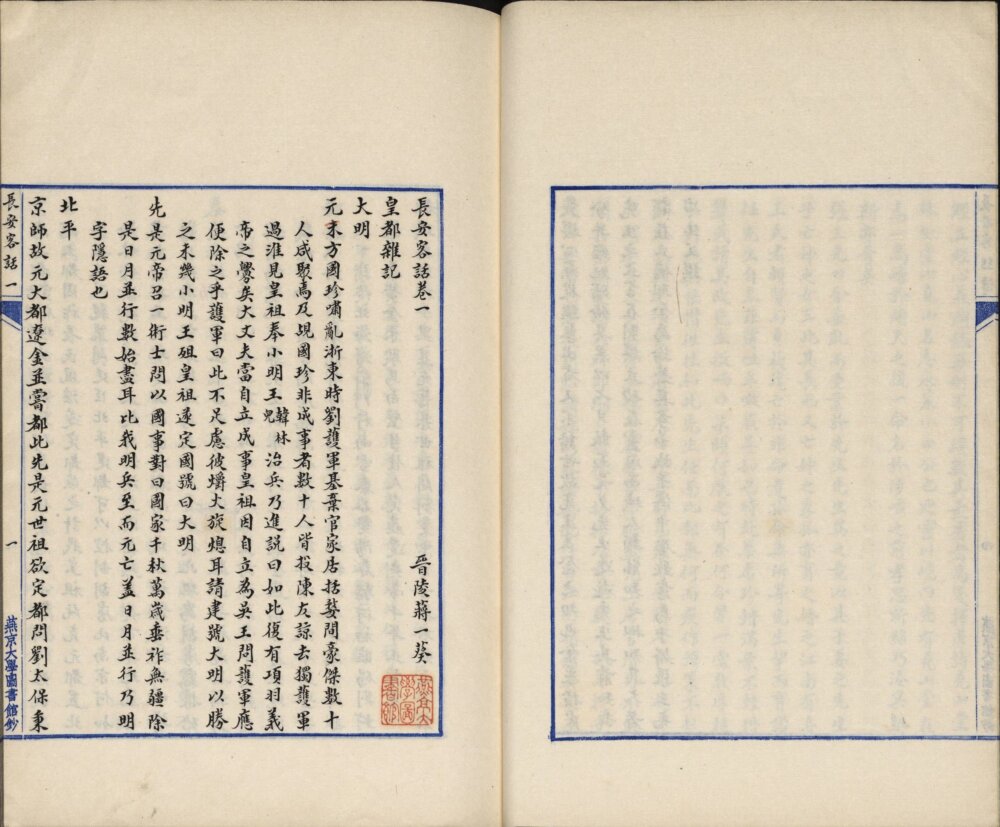 長安客話卷一
晉陵蔣一葵
皇都雜記
大明
元末方國珍嘯亂浙東時劉護軍基棄官家居括婺間豪傑數十
人咸聚焉及覘國珍非成事者數十人皆投陳友諒去獨護軍
過淮見皇祖奉小明王韓林兒治兵乃進說曰如此復有項羽義
帝之釁矣大丈夫當自立成事皇祖因自立為吳王問護軍應
便除之乎護軍曰此不足慮彼爝火旋熄耳請建號大明以勝
之未幾小明王殂皇祖遂定國號曰大明
先是元帝召一術士問以國事對曰國家千秋萬歲垂祚無疆除
是日月並行數始盡耳比我明兵至而元亡蓋日月並行乃明
字隱語也
北平
京師故元大都遼金並嘗都此先是元世祖欲定都問劉太保秉
長安客話 一
一
燕京大學圖書館鈔
燕京大學圖書館鈔